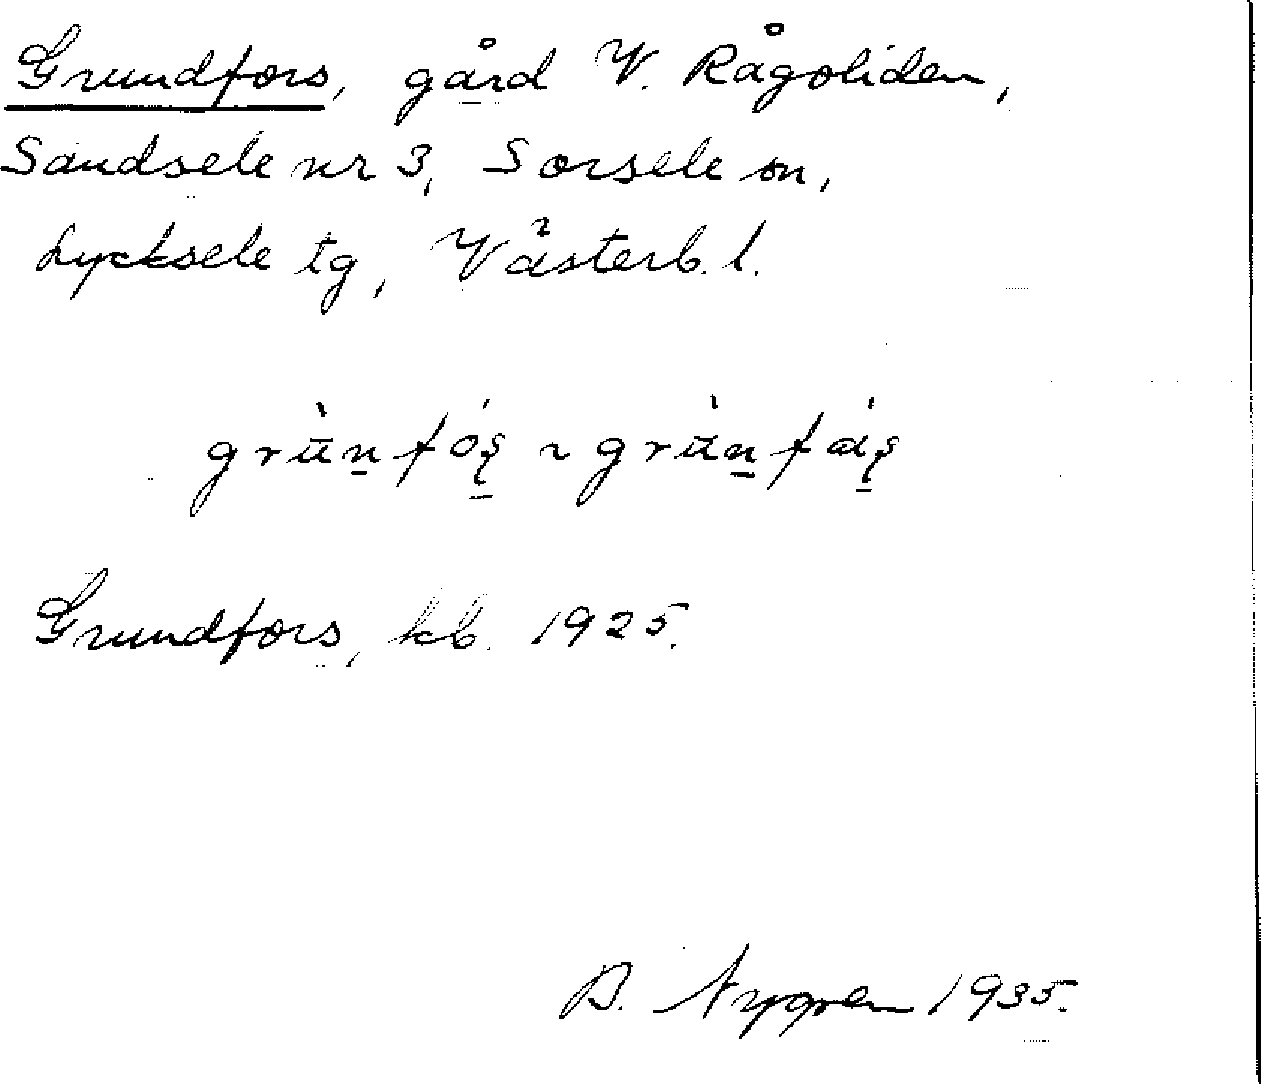 Grundfors, gård V. Rågoliden,
Sandsele nr 3, Sorsele sn,
Lycksele tg, Västerb. l.
grùnfós̱ ~ grùnfás̱
Grundfors, kb. 1925.
B. Nygren 1935.